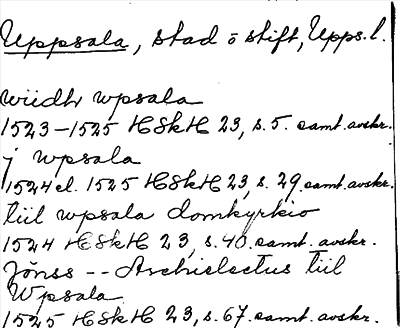 Uppsala, stad o stift, Upps.l.
wiidh wpsala
1523-1525 HSkH 23, s.5. samt.avskr.
j wpsala
1524 el. 1525 HSkH 23, s.29. samt.avskr.
tiil wpsala domkyrkio
1524 HSkH 23, s.40. samt. avskr.
Jönss -- Archielectus tiil
Wpsala
1525 HSkH 23, s.67. samt. avskr.